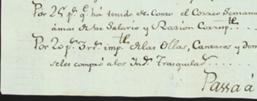 Por 26 p.s q.e há tenido de Costo el Correo Semana
á mas de su Salario y Racion Corresp.te
Por 20 p.s 3 rr.s imp.te de las Ollas, Cantaros, y dem
se les compró a los Ind.s Trasquilad
Passa á